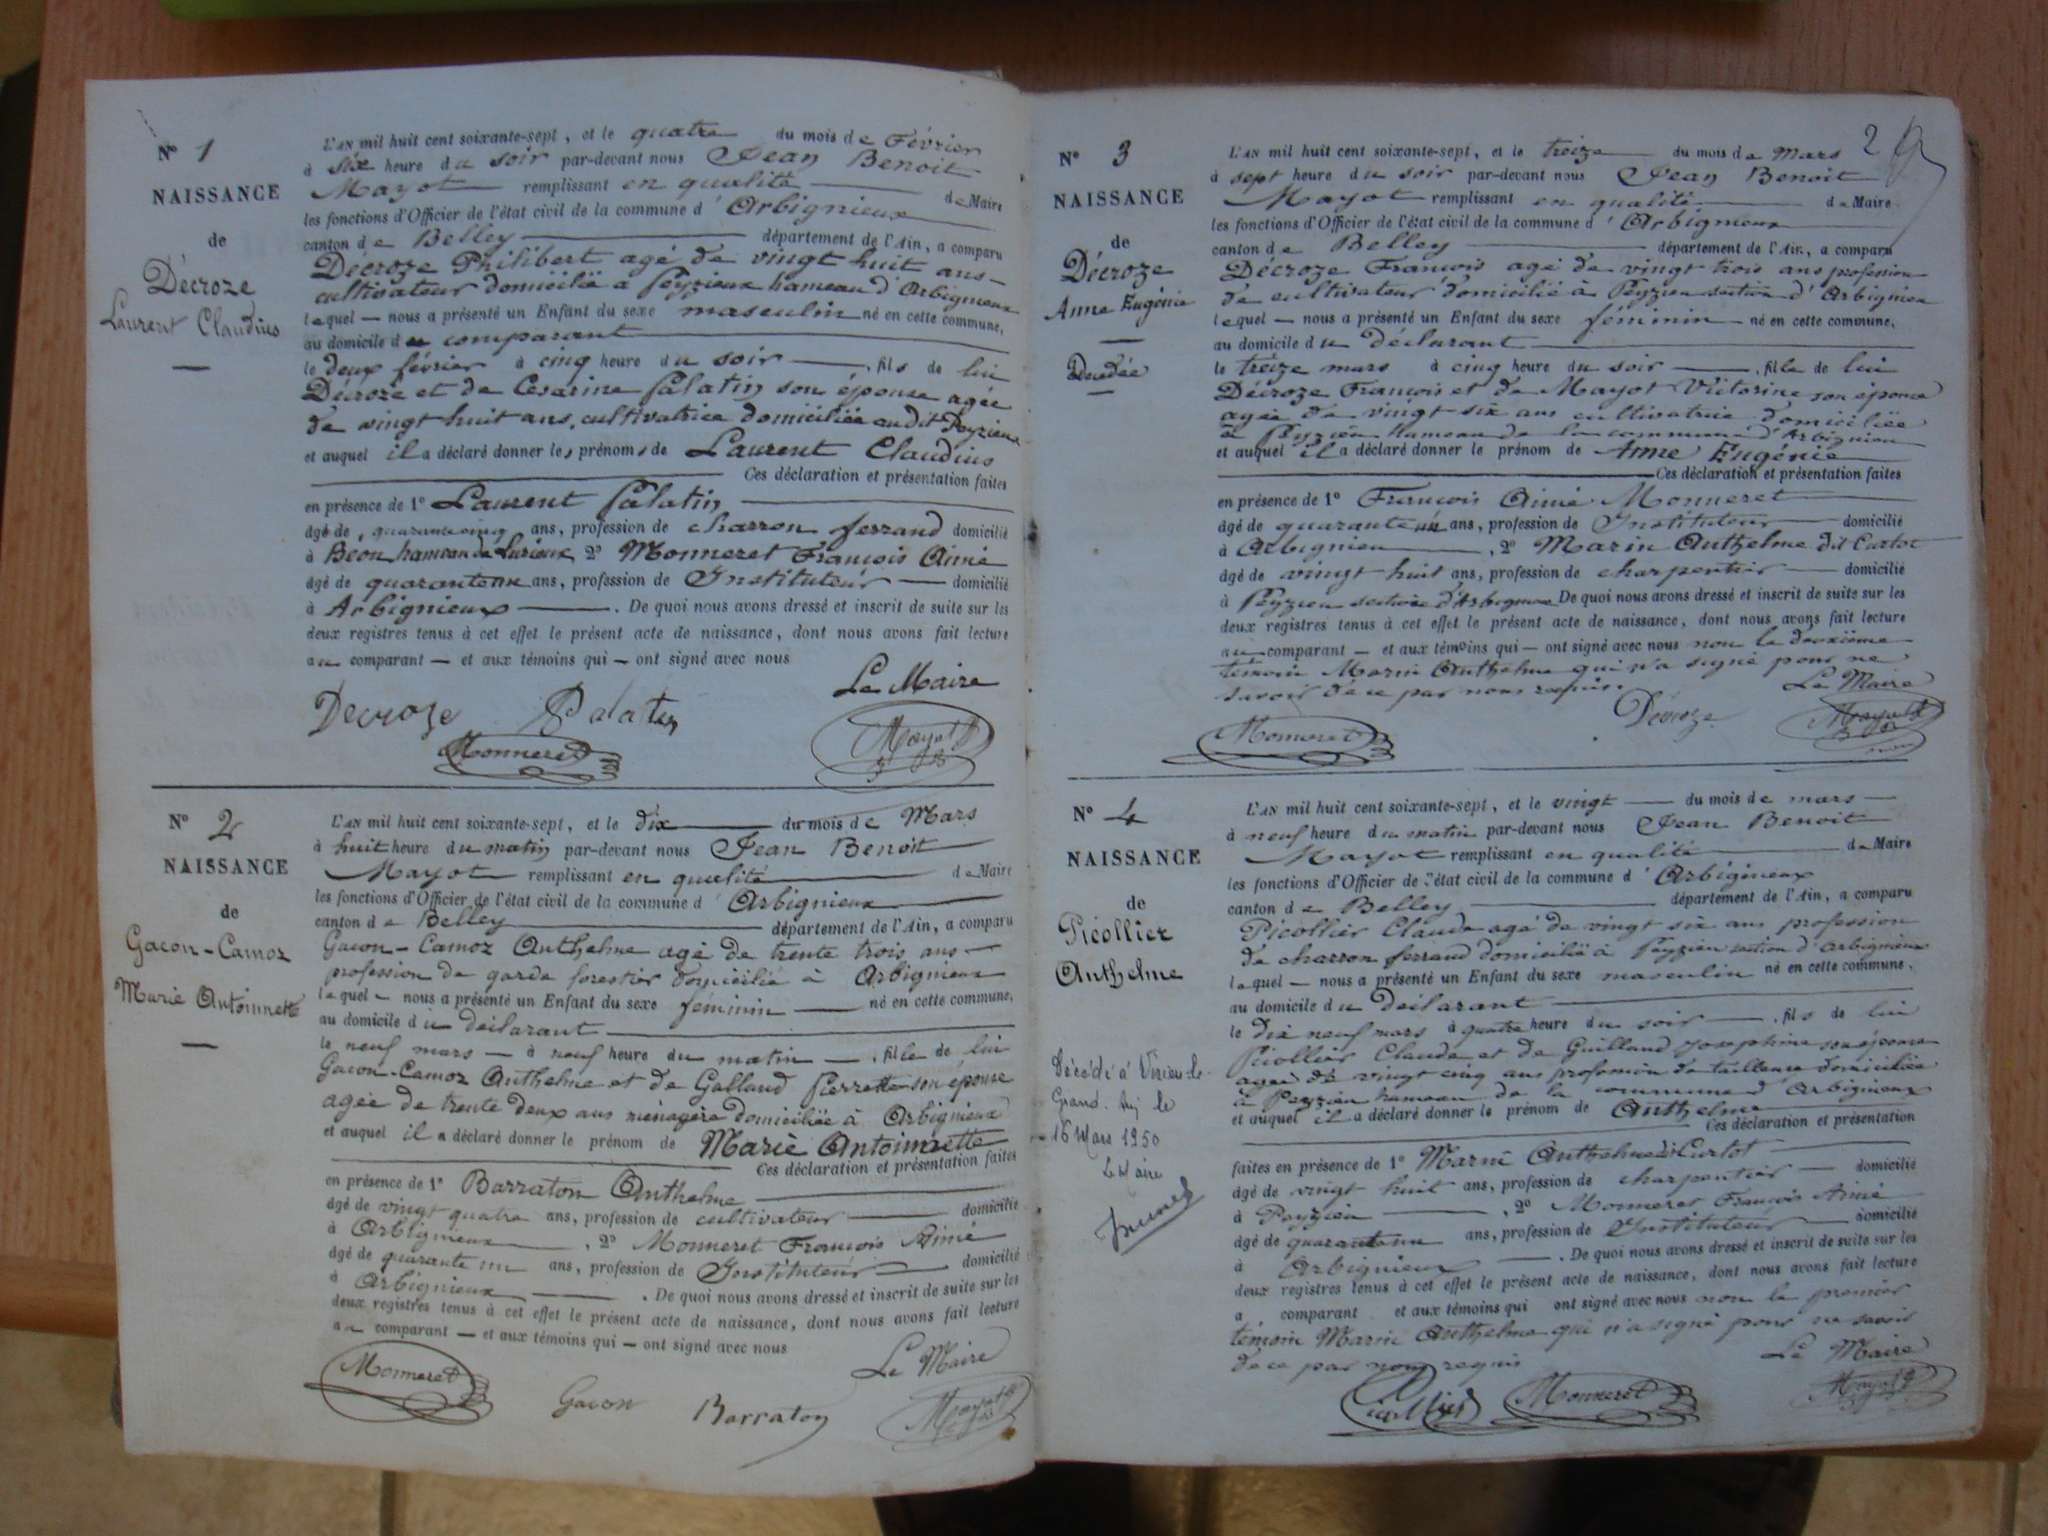 N° 1
NAISSANCE
de
Décroze
Laurent Claudius
L'AN mil huit cent soixante-sept, et le quatre du mois de Février
à six heure du soir par-devant nous Jean Benoit
Mayot remplissant en qualité de Maire
les fonctions d'Officier de l'état civil de la commune d'Arbignieux
canton de Belley département de l'Ain, a comparu
Décroze Philibert agé de vingt huit ans
cultivateur domicilié à Peyzieux hameau d'Arbignieux
lequel nous a présenté un Enfant du sexe masculin né en cette commune,
au domicile du comparant
le deux février à cinq heure du soir, fils de lui
Décroze et de Cesarine Palatin son épouse agée
de vingt huit ans, cultivatrice domiciliée au dit Peyzieux
et auquel il a déclaré donner les prénoms de Laurent Claudius
Ces déclaration et présentation faites
en présence de 1° Laurent Palatin
âgé de quarante cinq ans, profession de charron ferrand domicilié
à Béon hameau de Lurieux 2° Monneret François Aimé
âgé de quarante un ans, profession de Instituteur domicilié
à Arbignieux. De quoi nous avons dressé et inscrit de suite sur les
deux registres tenus à cet effet le présent acte de naissance, dont nous avons fait lecture
au comparant et aux témoins qui ont signé avec nous
Le Maire
Decroze Palatin
Monneret Mayot
N° 2
NAISSANCE
de
Gacon-Camoz
Marie Antoinnette
L'AN mil huit cent soixante-sept, et le dix du mois de Mars
à huit heure du matin par-devant nous Jean Benoit
Mayot remplissant en qualité de Maire
les fonctions d'Officier de l'état civil de la commune d'Arbignieux
canton de Belley département de l'Ain, a comparu
Gacon-Camoz Anthelme agé de trente trois ans
profession de garde forestier domicilié à Arbignieux
lequel nous a présenté un Enfant du sexe féminin né en cette commune,
au domicile du déclarant
le neuf mars à neuf heure du matin, fille de lui
Gacon-Camoz Anthelme et de Galland Pierrette son épouse
agée de trente deux ans ménagère domiciliée à Arbignieux
et auquel il a déclaré donner le prénom de Marie Antoinnette
Ces déclaration et présentation faites
en présence de 1° Barraton Anthelme
âgé de vingt quatre ans, profession de cultivateur domicilié
à Arbignieux, 2° Monneret François Aimé
âgé de quarante un ans, profession de Instituteur domicilié
à Arbignieux. De quoi nous avons dressé et inscrit de suite sur les
deux registres tenus à cet effet le présent acte de naissance, dont nous avons fait lecture
au comparant et aux témoins qui ont signé avec nous
Le Maire
Monneret Gacon Barraton Mayot
2
N° 3
NAISSANCE
de
Décroze
Anne Eugénie
Décédée
L'AN mil huit cent soixante-sept, et le treize du mois de Mars
à sept heure du soir par-devant nous Jean Benoit
Mayot remplissant en qualité de Maire
les fonctions d'Officier de l'état civil de la commune d'Arbignieux
canton de Belley département de l'Ain, a comparu
Décroze François agé de vingt trois ans profession
de cultivateur domicilié à Peyzieu section d'Arbignieu
lequel nous a présenté un Enfant du sexe féminin né en cette commune,
au domicile du déclarant
le treize mars à cinq heure du soir, fille de lui
Décroze François et de Mayot Victorine son épouse
agée de vingt six ans cultivatrice domiciliée
à Peyzieu hameau de la commune d'Arbignieu
et auquel il a déclaré donner le prénom de Anne Eugénie
Ces déclaration et présentation faites
en présence de 1° François Aimé Monneret
âgé de quarante un ans, profession de Instituteur domicilié
à Arbignieu, 2° Marin Anthelme dit Curtot
âgé de vingt huit ans, profession de charpentier domicilié
à Peyzieu section d'Arbignieu De quoi nous avons dressé et inscrit de suite sur les
deux registres tenus à cet effet le présent acte de naissance, dont nous avons fait lecture
au comparant et aux témoins qui ont signé avec nous non le deuxième
témoin Marin Anthelme qui n'a signé pour ne
savoir de ce par nous requis.
Le Maire
Monneret Décroze Mayot
N° 4
NAISSANCE
de
Picollier
Anthelme
Décédé à Virieu-le-
Grand. Ain le
16 Mars 1950
Le Maire
L'AN mil huit cent soixante-sept, et le vingt du mois de mars
à neuf heure du matin par-devant nous Jean Benoit
Mayot remplissant en qualité de Maire
les fonctions d'Officier de l'état civil de la commune d'Arbignieux
canton de Belley département de l'Ain, a comparu
Picollier Claude agé de vingt six ans profession
de charron ferrand domicilié à Peyzieu section d'Arbignieux
lequel nous a présenté un Enfant du sexe masculin né en cette commune,
au domicile du déclarant
le dix neuf mars à quatre heure du soir, fils de lui
Picollier Claude et de Guilland Josephine son épouse
agée de vingt cinq ans profession de tailleuse domiciliée
à Peyzieu hameau de la commune d'Arbignieux
et auquel il a déclaré donner le prénom de Anthelme
Ces déclaration et présentation
faites en présence de 1° Marin Anthelme dit Curtot
âgé de vingt huit ans, profession de charpentier domicilié
à Peyzieu, 2° Monneret François Aimé
âgé de quarante un ans, profession de Instituteur domicilié
à Arbignieux. De quoi nous avons dressé et inscrit de suite sur les
deux registres tenus à cet effet le présent acte de naissance, dont nous avons fait lecture
a comparant et aux témoins qui ont signé avec nous non le premier
témoin Marin Anthelme qui n'a signé pour ne savoir
de ce par nous requis
Le Maire
Picollier Monneret Mayot